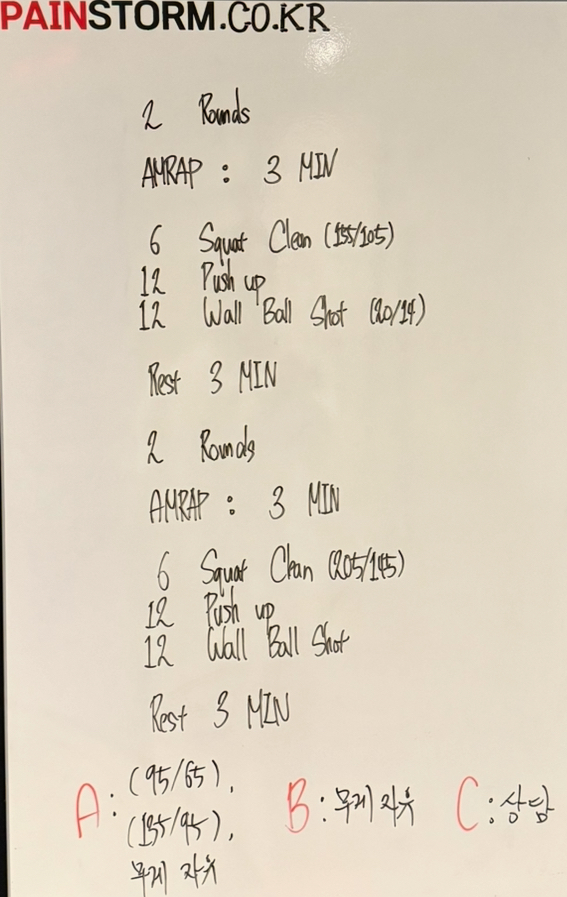 PAINSTORM.CO.KR
2 Rounds
AMRAP : 3 MIN
6 Squat Clean (155/105)
12 Push up
12 Wall Ball Shot (20/14)
Rest 3 MIN
2 Rounds
AMRAP : 3 MIN
6 Squat Clean (205/145)
12 Push up
12 Wall Ball Shot
Rest 3 MIN
A : (95/65),
(135/95),
무게 자유
B : 무게 자유
C : 상담